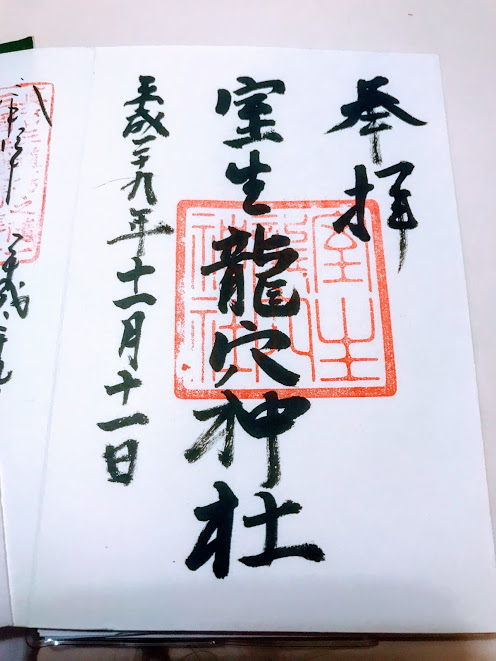 奉拝
室生龍穴神社
平成二十九年十一月十一日
室生
龍穴
神社